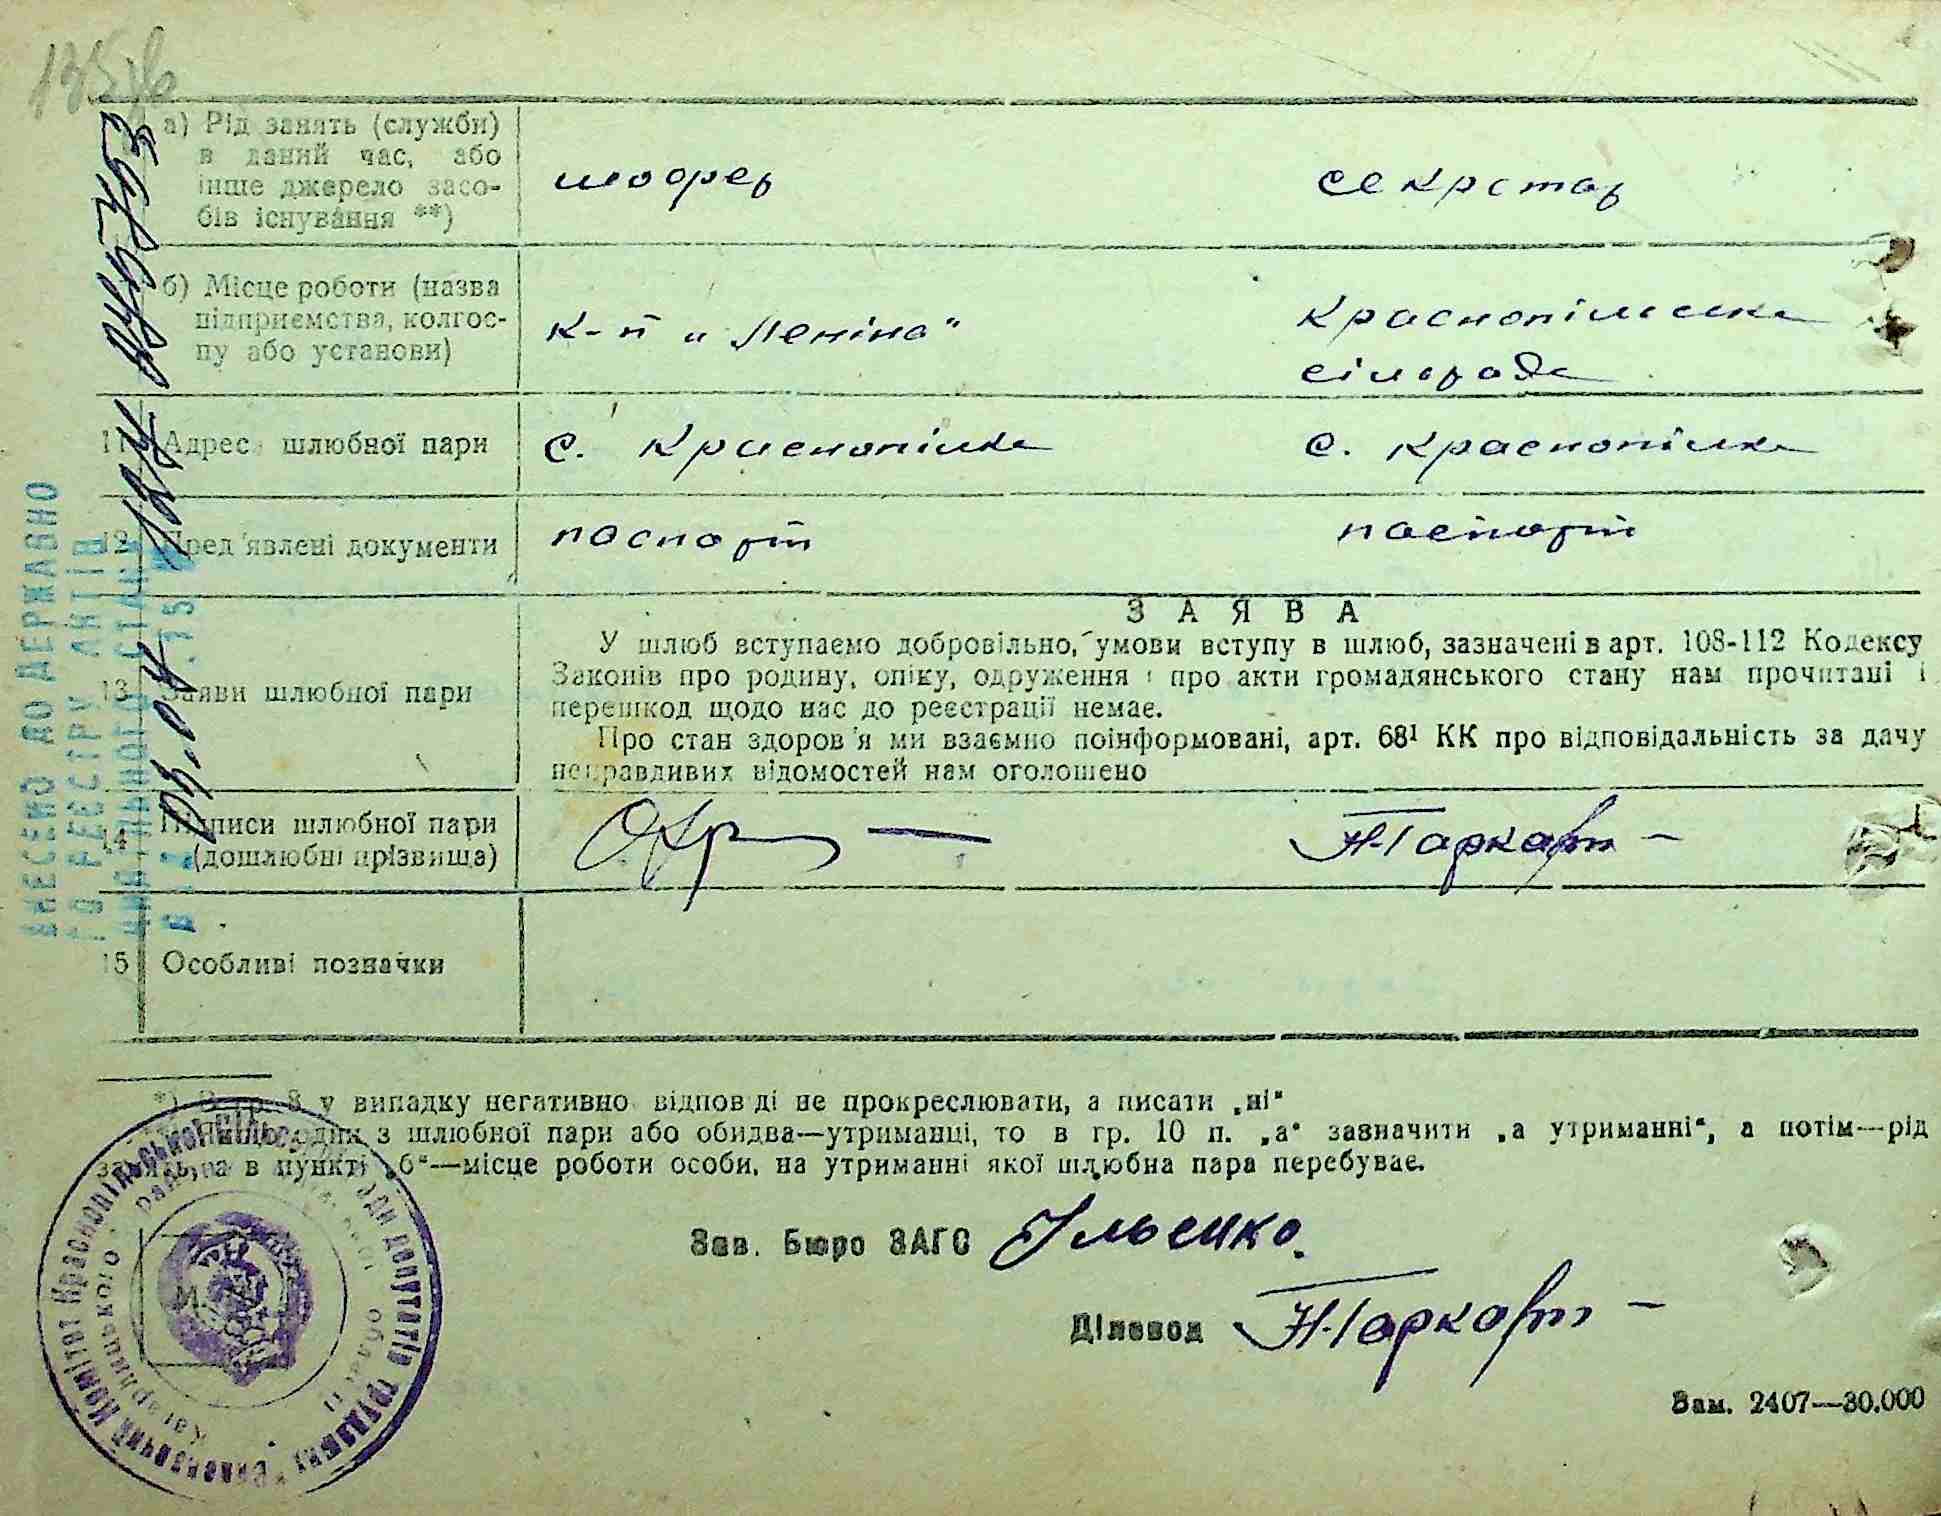 а) Рід занять (служби)
в даний час, або
інше джерело засо-
бів існування **)
шофер
секретар
б) Місце роботи (назва
підприємства, колгос-
пу або установи)
к-п „Леніна"
Краснопільська
сілорада
11 Адрес шлюбної пари
с. Краснопілка
с. Краснопілка
12 Пред'явлені документи
паспорт
паспорт
13 Заяви шлюбної пари
ЗАЯВА
У шлюб вступаємо добровільно, умови вступу в шлюб, зазначені в арт. 108-112 Кодексу
Законів про родину, опіку, одруження і про акти громадянського стану нам прочитані і
перешкод щодо нас до реєстрації немає.
Про стан здоров'я ми взаємно поінформовані, арт. 68¹ КК про відповідальність за дачу
неправдивих відомостей нам оголошено
14 Підписи шлюбної пари
(дошлюбні прізвища)
15 Особливі позначки
ВНЕСЕНО ДО ДЕРЖАВНО
ГО РЕЄСТРУ АКТІВ
ЦИВІЛЬНОГО СТАНУ
*) В гр. 8 у випадку негативно відпов ді не прокреслювати, а писати „ні“
Якщо один з шлюбної пари або обидва—утриманці, то в гр. 10 п. „а“ зазначити „а утриманні“, а потім—рід
занять, а в пункті „б“—місце роботи особи, на утриманні якої шлюбна пара перебуває.
Зав. Бюро ЗАГС Ільєнко.
Діловод
Виконавчий Комітет Краснопільської сільської Ради депутатів трудящих
Кагарлицького району
Зам. 2407—30.000